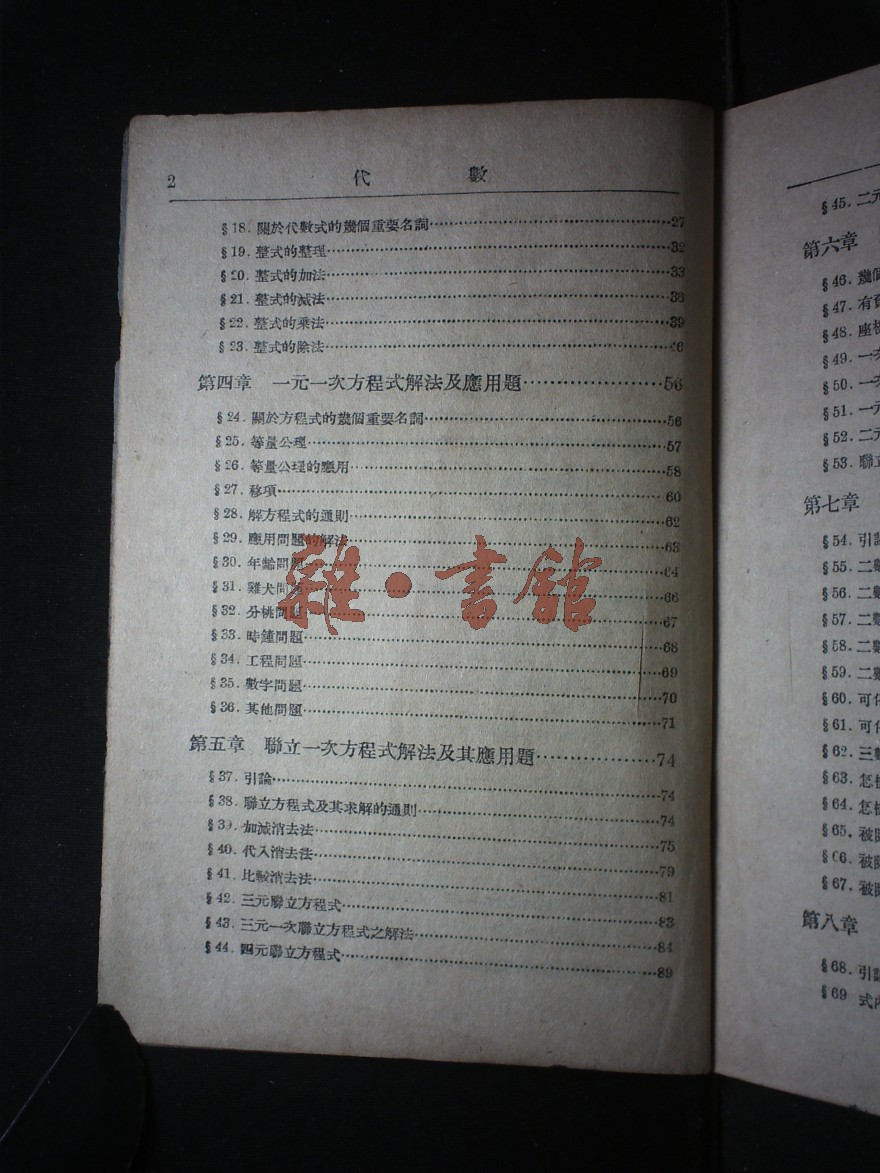 2 代 數
§18. 關於代數式的幾個重要名詞 27
§19. 整式的整理 32
§20. 整式的加法 33
§21. 整式的減法 36
§22. 整式的乘法 39
§23. 整式的除法 46
第四章 一元一次方程式解法及應用題 56
§24. 關於方程式的幾個重要名詞 56
§25. 等量公理 57
§26. 等量公理的應用 58
§27. 移項 60
§28. 解方程式的通則 62
§29. 應用問題的解法 63
§30. 年齡問題 64
§31. 雞犬問題 66
§32. 分桃問題 67
§33. 時鐘問題 68
§34. 工程問題 69
§35. 數字問題 70
§36. 其他問題 71
第五章 聯立一次方程式解法及其應用題 74
§37. 引論 74
§38. 聯立方程式及其求解的通則 74
§39. 加減消去法 75
§40. 代入消去法 79
§41. 比較消去法 81
§42. 三元聯立方程式 83
§43. 三元一次聯立方程式之解法 84
§44. 四元聯立方程式 89
雜·書館
§45. 二元
第六章
§46. 幾個
§47. 有
§48. 座
§49. 一次
§50. 一
§51. 一元
§52. 二元
§53. 聯立
第七章
§54. 引論
§55. 二數
§56. 二數
§57. 二數
§58. 二數
§59. 二數
§60. 可
§61. 可
§62. 三數
§63. 怎樣
§64. 怎樣
§65. 被
§66. 被
§67. 被
第八章
§68. 引論
§69 式